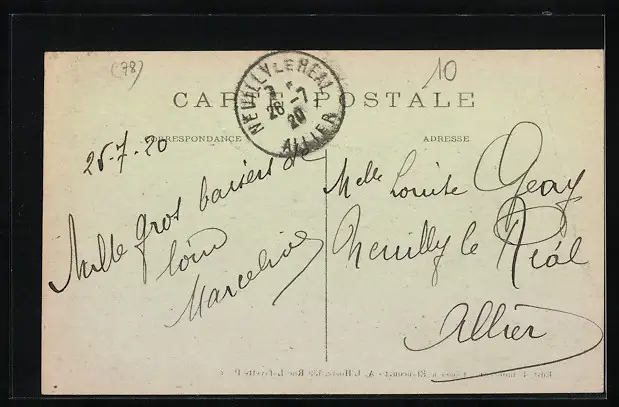 (78)
10
CARTE POSTALE
NEUILLY LE REAL
26-7
20
ALLIER
CORRESPONDANCE
ADRESSE
26-7-20
Mille gros baisers de
loin
Marceline
Melle Louise Geay
Neuilly le Réal
Allier